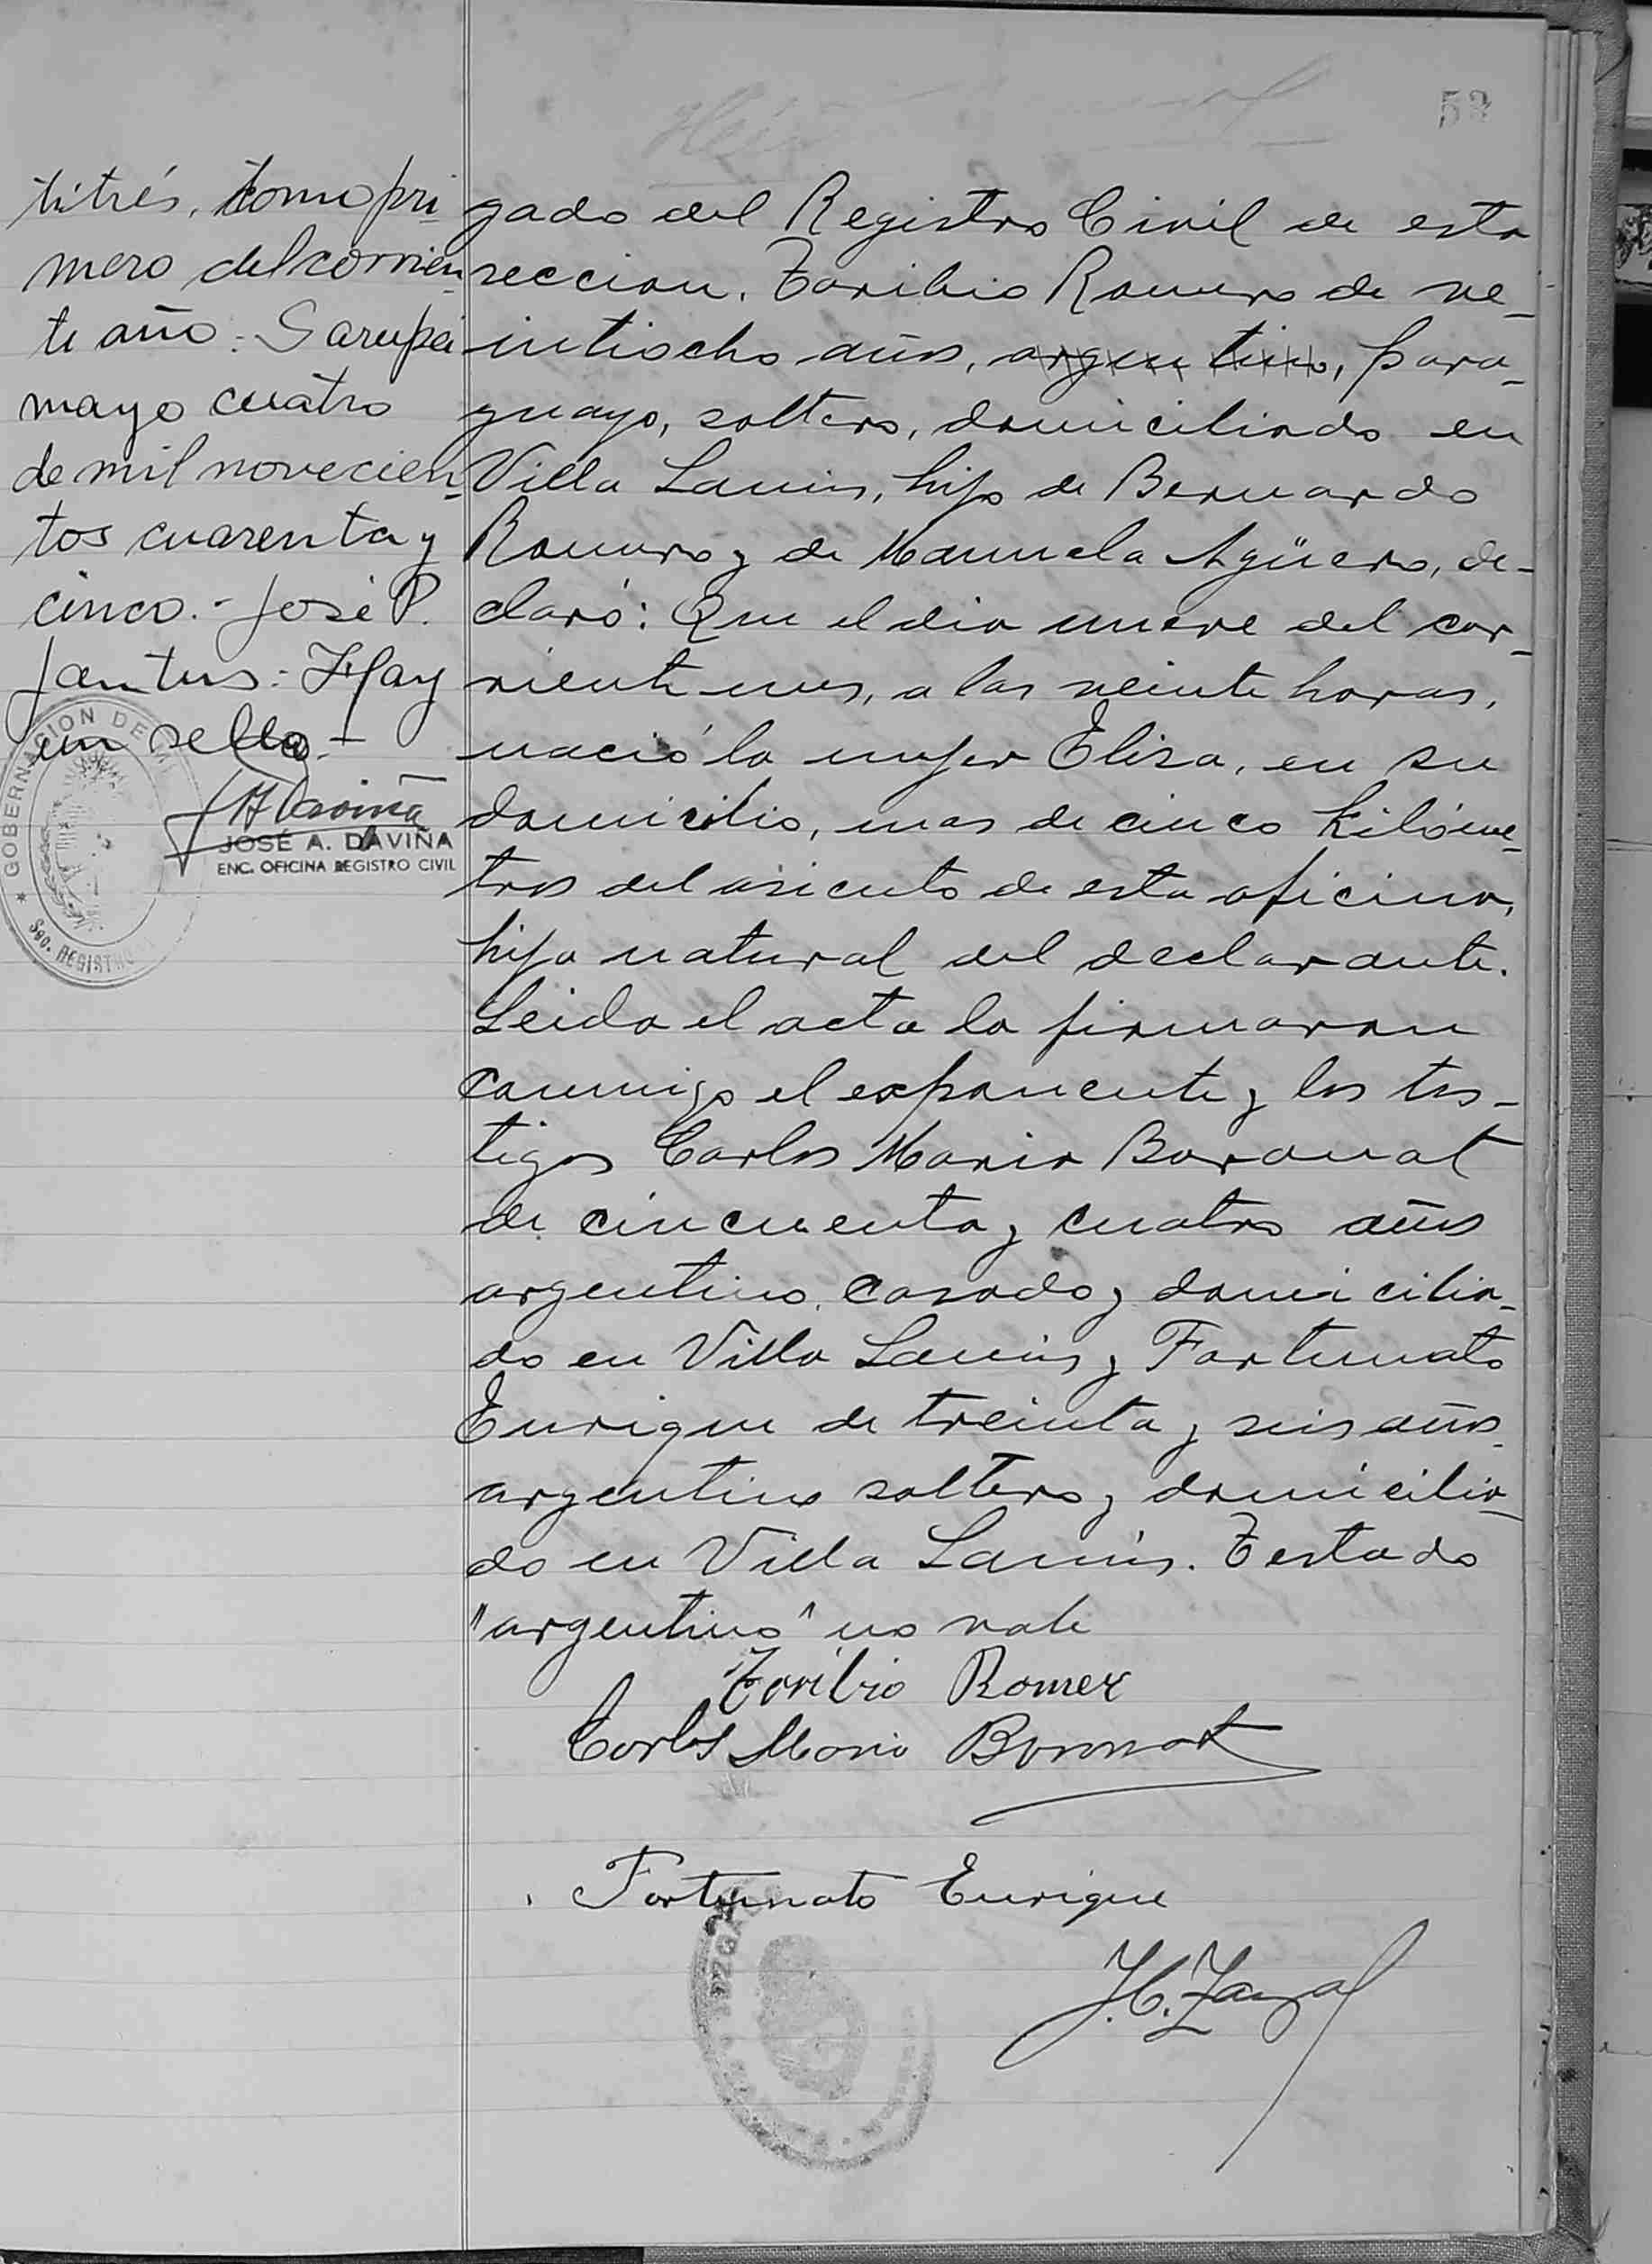 53
titrés, tomo pri-
mero del corrien-
te año:- Garupá
mayo cuatro
de mil novecien-
tos cuarenta y
cinco.- José P.
Jantus:- Hay
un sello.-
GOBERNACION DE MI
Sec. REGISTRO
JOSÉ A. DAVIÑA
ENC. OFICINA REGISTRO CIVIL
gado del Registro Civil de esta
seccion. Toribio Romero de ve-
intiocho años, argentino, para-
guayo, soltero, domiciliado en
Villa Lanús, hijo de Bernardo
Romero y de Manuela Agüero, de-
claró: Que el dia nueve del cor-
riente mes, a las veinte horas,
nació la mujer Elisa, en su
domicilio, mas de cinco kilóme-
tros del asiento de esta oficina,
hija natural del declarante.
Leida el acta la firmaron
conmigo el exponente y los tes-
tigos Carlos Maria Baranat
de cincuenta y cuatro años
argentino, casado y domicilia-
do en Villa Lanús y Fortunato
Enrique de treinta y seis años
argentino soltero y domicilia-
do en Villa Lanús. Testado
"argentino" no vale
Toribio Romer
Carlos Maria
Fortunato Enrique